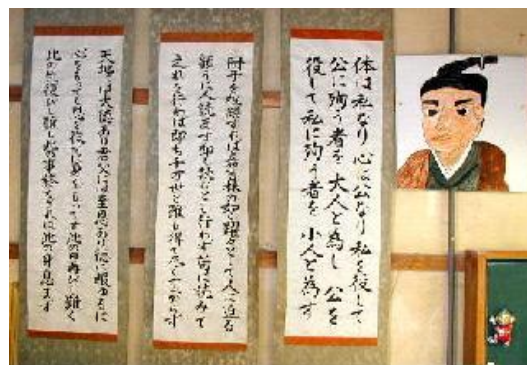 体は私なり 心は公なり 私を役して
公に殉う者を 大人と為し 公を
役して私に殉う者を 小人と為す
冊子を披繙すれば嘉言林の如く躍々として人に迫る
顧うに人読まず即し読むとも行わず 苟に読みて
之れを行わば即ち千万世と雖も得て尽くすべからず
天地には大徳あり君父には至恩あり徳に報ゆるに
心をもってし恩を復すに身をもってす此の日再びし難く
此の生復びし難し此の事終えざれば此の身息まず